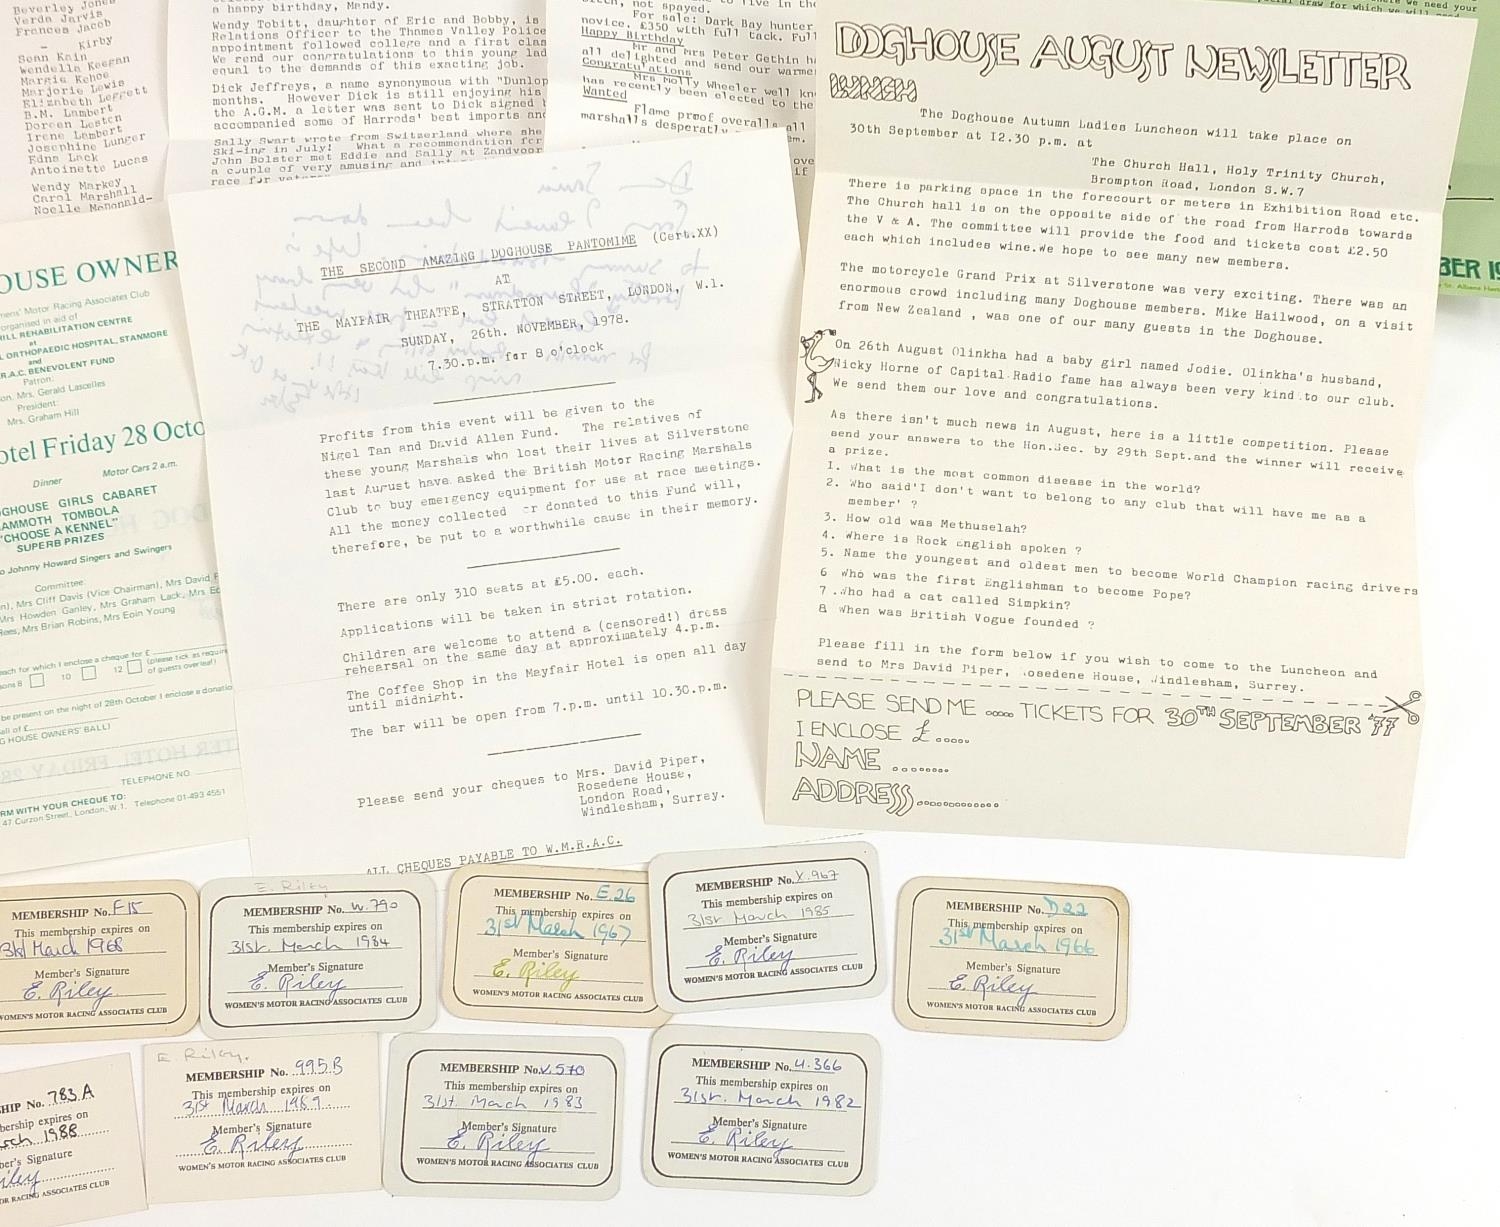 Beverley Jones
Verda Jarvis
Frances Jacob
Kirby
Sean Kain
Wendella Keegan
Margie Kehoe
Marjorie Lewis
Elizabeth Leggett
B.M. Lambert
Doreen Lesten
Irene Lambert
Josephine Lunger
Edna Lack
Antoinette Lucas
Wendy Markey
Carol Marshall
Noelle McDonald-
a happy birthday, Mandy.
Wendy Tobitt, daughter of Eric and Bobby, is
Relations Officer to the Thames Valley Police
appointment followed college and a first clas
We send our congratulations to this young lad
equal to the demands of this exacting job.
Dick Jeffreys, a name synonymous with "Dunlop
months. However Dick is still enjoying his
the A.G.M. a letter was sent to Dick signed b
accompanied some of Harrods' best imports and
Sally Swart wrote from Switzerland where she
Ski-ing in July! What a recommendation for
John Bolster met Eddie and Sally at Zandvoor
a couple of very amusing and
race for
not spayed.
For sale: Dark Bay hunter
novice. £350 with full tack. Full
Happy Birthday
Mr and Mrs Peter Gethin h
all delighted and send our warme
Congratulations
Mrs Molly Wheeler well kn
has recently been elected to the
Wanted
Flame proof overalls all
marshalls desperatly
DOGHOUSE AUGUST NEWSLETTER
LUNCH
The Doghouse Autumn Ladies Luncheon will take place on
30th September at I2.30 p.m. at
The Church Hall, Holy Trinity Church,
Brompton Road, London S.W.7
There is parking space in the forecourt or meters in Exhibition Road etc.
The Church hall is on the opposite side of the road from Harrods towards
the V & A. The committee will provide the food and tickets cost £2.50
each which includes wine.We hope to see many new members.
The motorcycle Grand Prix at Silverstone was very exciting. There was an
enormous crowd including many Doghouse members. Mike Hailwood, on a visit
from New Zealand , was one of our many guests in the Doghouse.
On 26th August Olinkha had a baby girl named Jodie. Olinkha's husband,
Nicky Horne of Capital Radio fame has always been very kind to our club.
We send them our love and congratulations.
As there isn't much news in August, here is a little competition. Please
send your answers to the Hon.Sec. by 29th Sept.and the winner will receive
a prize.
1. What is the most common disease in the world?
2. Who said'I don't want to belong to any club that will have me as a
member' ?
3. How old was Methuselah?
4. Where is Rock English spoken ?
5. Name the youngest and oldest men to become World Champion racing drivers
6 Who was the first Englishman to become Pope?
7 .Who had a cat called Simpkin?
8 When was British Vogue founded ?
Please fill in the form below if you wish to come to the Luncheon and
send to Mrs David Piper, Rosedene House, Windlesham, Surrey.
PLEASE SEND ME ..... TICKETS FOR 30TH SEPTEMBER '77
I ENCLOSE £.....
NAME ........
ADDRESS.............
BER 19
THE SECOND AMAZING DOGHOUSE PANTOMIME (Cert.XX)
AT
THE MAYFAIR THEATRE, STRATTON STREET, LONDON, W.1.
SUNDAY, 26th. NOVEMBER, 1978.
7.30.p.m. for 8 o'clock
Profits from this event will be given to the
Nigel Tan and David Allen Fund. The relatives of
these young Marshals who lost their lives at Silverstone
last August have asked the British Motor Racing Marshals
Club to buy emergency equipment for use at race meetings.
All the money collected or donated to this Fund will,
therefore, be put to a worthwhile cause in their memory.
There are only 310 seats at £5.00. each.
Applications will be taken in strict rotation.
Children are welcome to attend a (censored!) dress
rehearsal on the same day at approximately 4.p.m.
The Coffee Shop in the Mayfair Hotel is open all day
until midnight.
The bar will be open from 7.p.m. until 10.30.p.m.
Please send your cheques to Mrs. David Piper,
Rosedene House,
London Road,
Windlesham, Surrey.
ALL CHEQUES PAYABLE TO W.M.R.A.C.
OUSE OWNER
mens' Motor Racing Associates Club
organised in aid of
ILL REHABILITATION CENTRE
at
L ORTHOPAEDIC HOSPITAL, STANMORE
and
R.A.C. BENEVOLENT FUND
Patron:
on. Mrs. Gerald Lascelles
President:
Mrs. Graham Hill
otel Friday 28 Octo
Dinner Motor Cars 2 a.m.
OGHOUSE GIRLS CABARET
AMMOTH TOMBOLA
"CHOOSE A KENNEL"
SUPERB PRIZES
o Johnny Howard Singers and Swingers
Committee:
n), Mrs Cliff Davis (Vice Chairman), Mrs David
Mrs Howden Ganley, Mrs Graham Lack, Mrs
Rees, Mrs Brian Robins, Mrs Eoin Young
each for which I enclose a cheque for £
sons 8 10 12 (please tick as require
of guests overleaf)
be present on the night of 28th October I enclose a donatio
all of £
G HOUSE OWNERS' BALL)
TELEPHONE NO.
RM WITH YOUR CHEQUE TO:
47 Curzon Street, London, W.1. Telephone 01-493 4551
MEMBERSHIP No. F15
This membership expires on
31st March 1968
Member's Signature
E. Riley
WOMEN'S MOTOR RACING ASSOCIATES CLUB
E. Riley
MEMBERSHIP No. W.790
This membership expires on
31st. March 1984
Member's Signature
E. Riley
WOMEN'S MOTOR RACING ASSOCIATES CLUB
MEMBERSHIP No. E.26
This membership expires on
31st March 1967
Member's Signature
E. Riley
WOMEN'S MOTOR RACING ASSOCIATES CLUB
MEMBERSHIP No. X.967
This membership expires on
31st March 1985
Member's Signature
E. Riley
WOMEN'S MOTOR RACING ASSOCIATES CLUB
MEMBERSHIP No. D22
This membership expires on
31st March 1966
Member's Signature
E. Riley
WOMEN'S MOTOR RACING ASSOCIATES CLUB
HIP No. 783A
bership expires on
arch 1988
ber's Signature
iley
OR RACING ASSOCIATES CLUB
E. Riley.
MEMBERSHIP No. 995B
This membership expires on
31st March 1989
Member's Signature
E. Riley
WOMEN'S MOTOR RACING ASSOCIATES CLUB
MEMBERSHIP No. V.570
This membership expires on
31st. March 1983
Member's Signature
E. Riley
WOMEN'S MOTOR RACING ASSOCIATES CLUB
MEMBERSHIP No. U.366
This membership expires on
31st. March 1982
Member's Signature
E. Riley
WOMEN'S MOTOR RACING ASSOCIATES CLUB